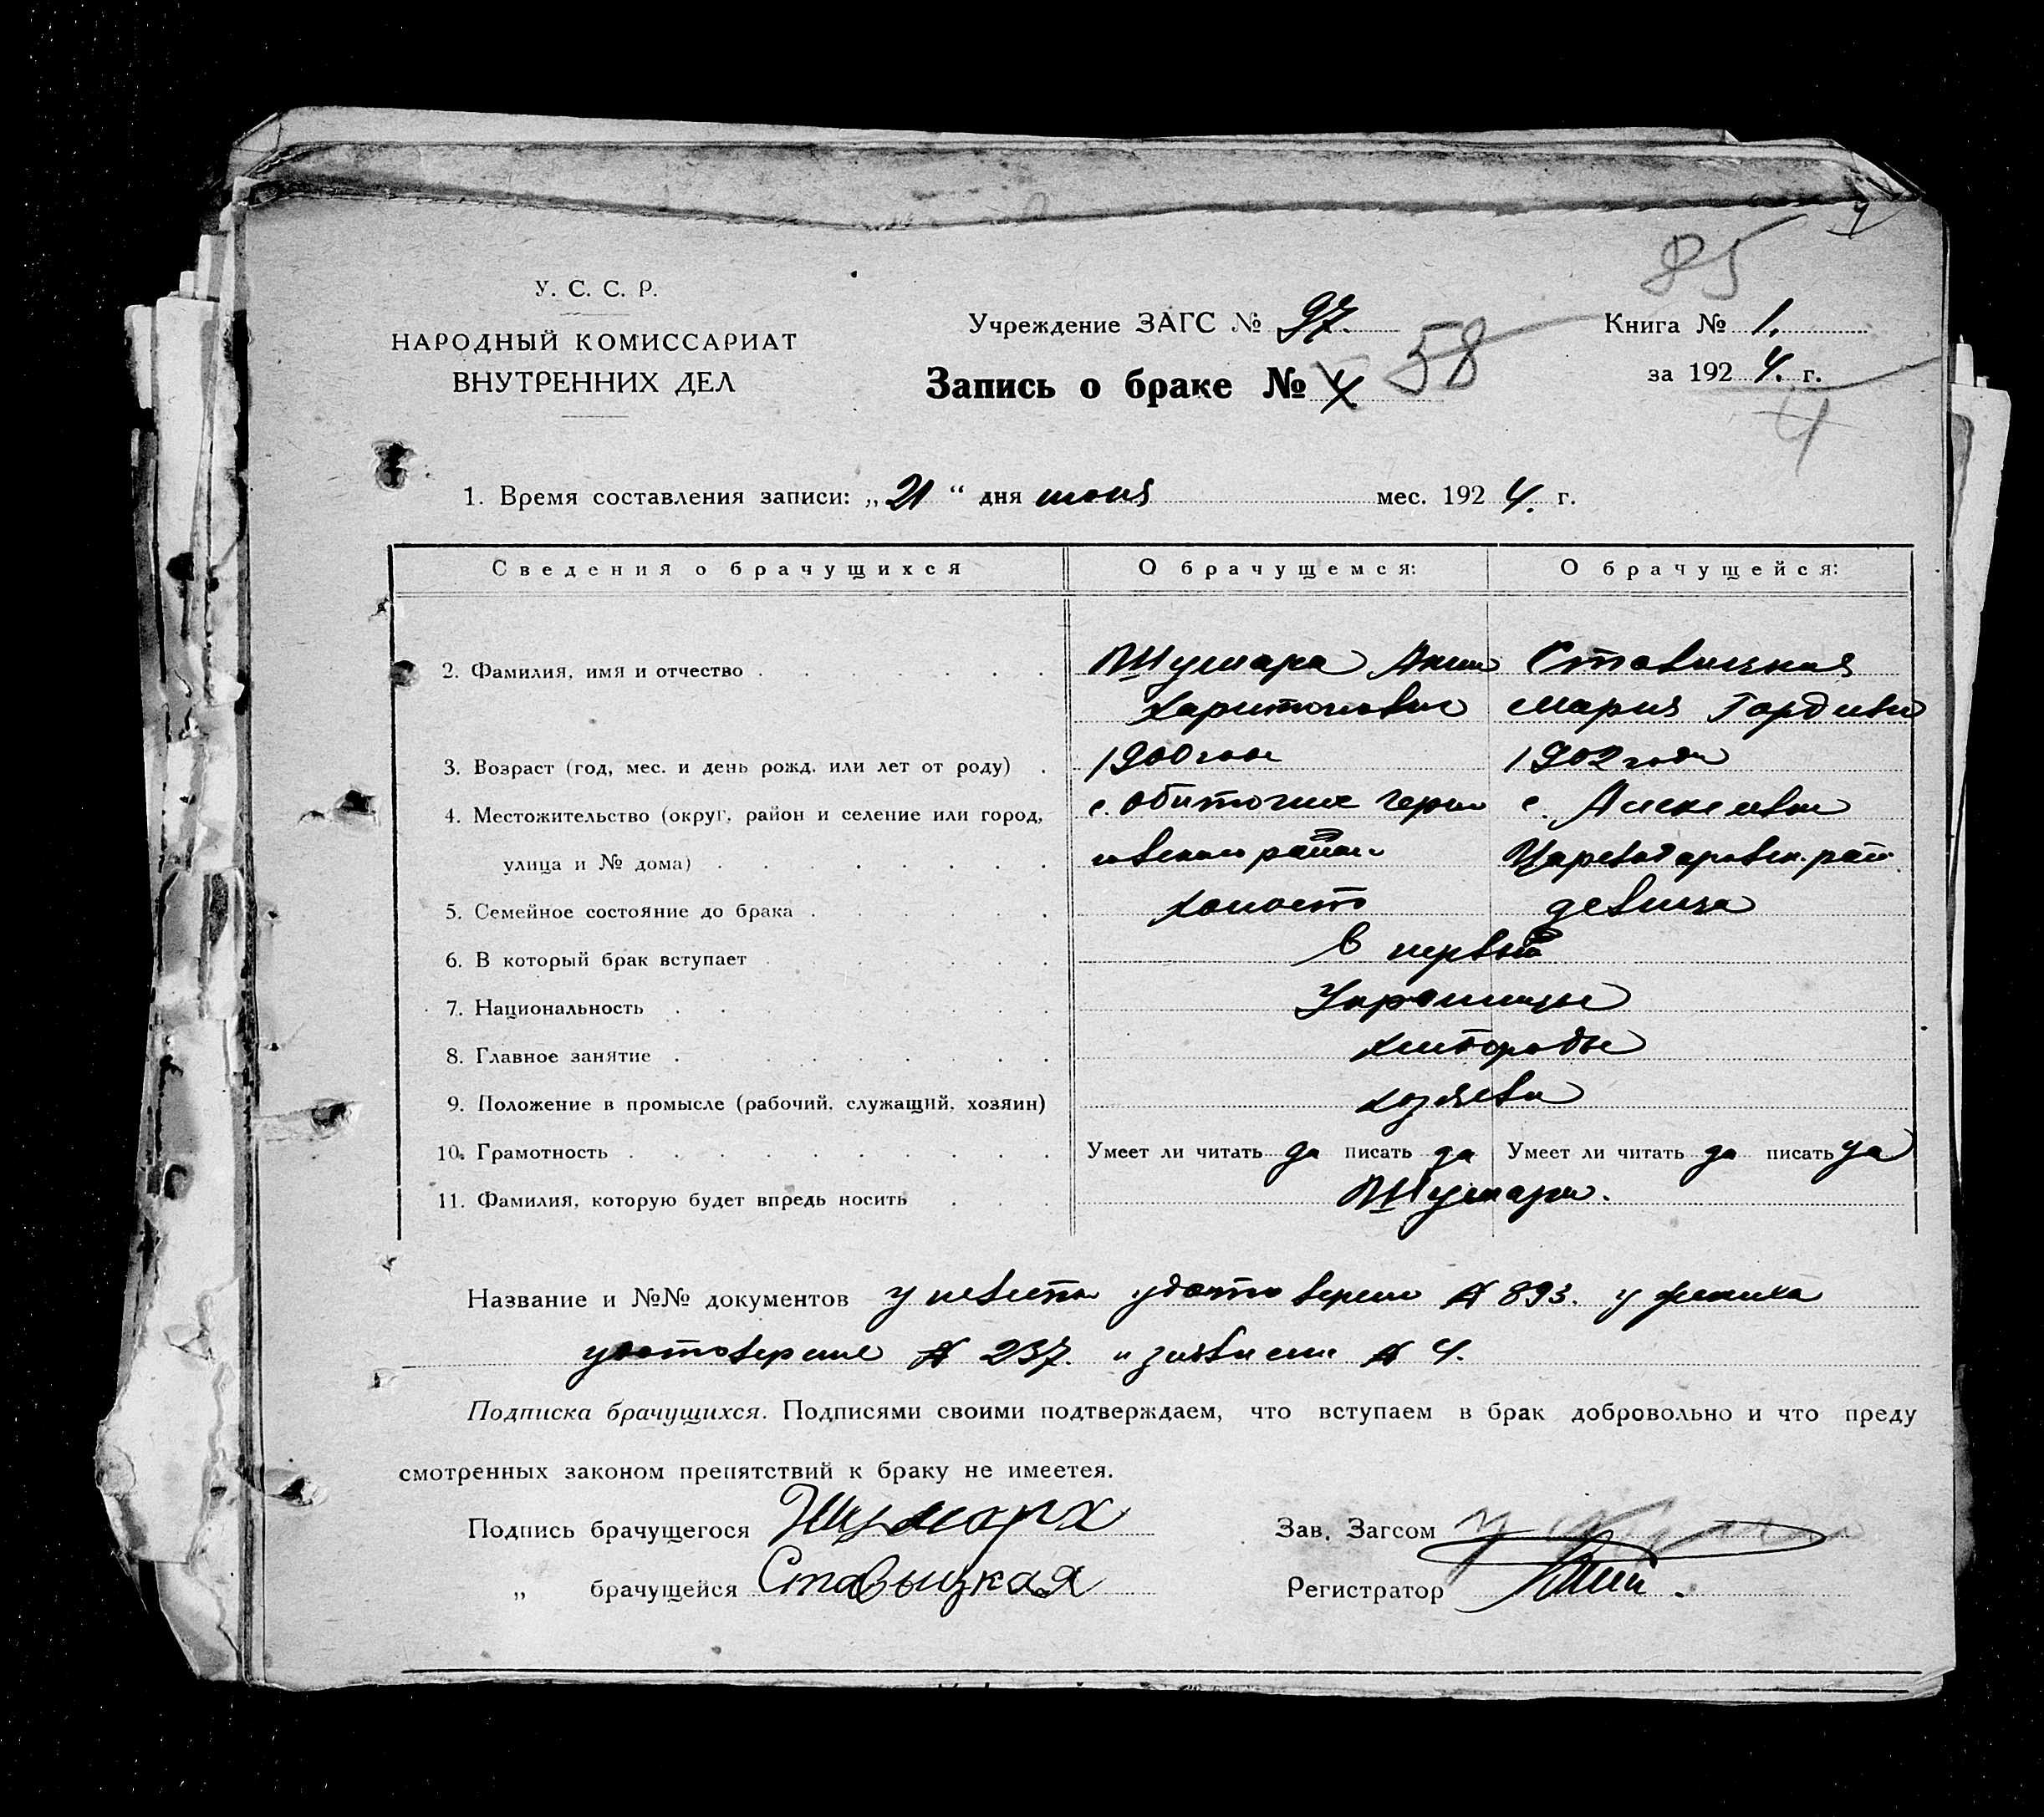 85
У. С. С. Р.
НАРОДНЫЙ КОМИССАРИАТ
ВНУТРЕННИХ ДЕЛ
Учреждение ЗАГС № 97.
Запись о браке № 4 58
Книга № 1.
за 1924. г.
4
1. Время составления записи: „21“ дня июня мес. 1924. г.
Сведения о брачущихся О брачущемся: О брачущейся:
2. Фамилия, имя и отчество Шумара Аким Ставицкая
Харитонович Мария Гордеев
3. Возраст (год, мес. и день рожд. или лет от роду) 1900 года 1902 года
4. Местожительство (округ, район и селение или город, с. Обиточне Черни с. Алексеевки
улица и № дома) говского района Царевод аровск. рай
5. Семейное состояние до брака холост девица
6. В который брак вступает в первый
7. Национальность Украинцы
8. Главное занятие хлеборобы
9. Положение в промысле (рабочий, служащий, хозяин) хозяева
10. Грамотность Умеет ли читать да писать да Умеет ли читать да писать да
11. Фамилия, которую будет впредь носить Шумара.
Название и №№ документов у невесты удостоверен № 893. у жениха
удостоверение № 237. и заявление № 4.
Подписка брачущихся. Подписями своими подтверждаем, что вступаем в брак добровольно и что преду
смотренных законом препятствий к браку не имеетея.
Подпись брачущегося Шумара Зав. Загсом
„ брачущейся Ставыцкая Регистратор